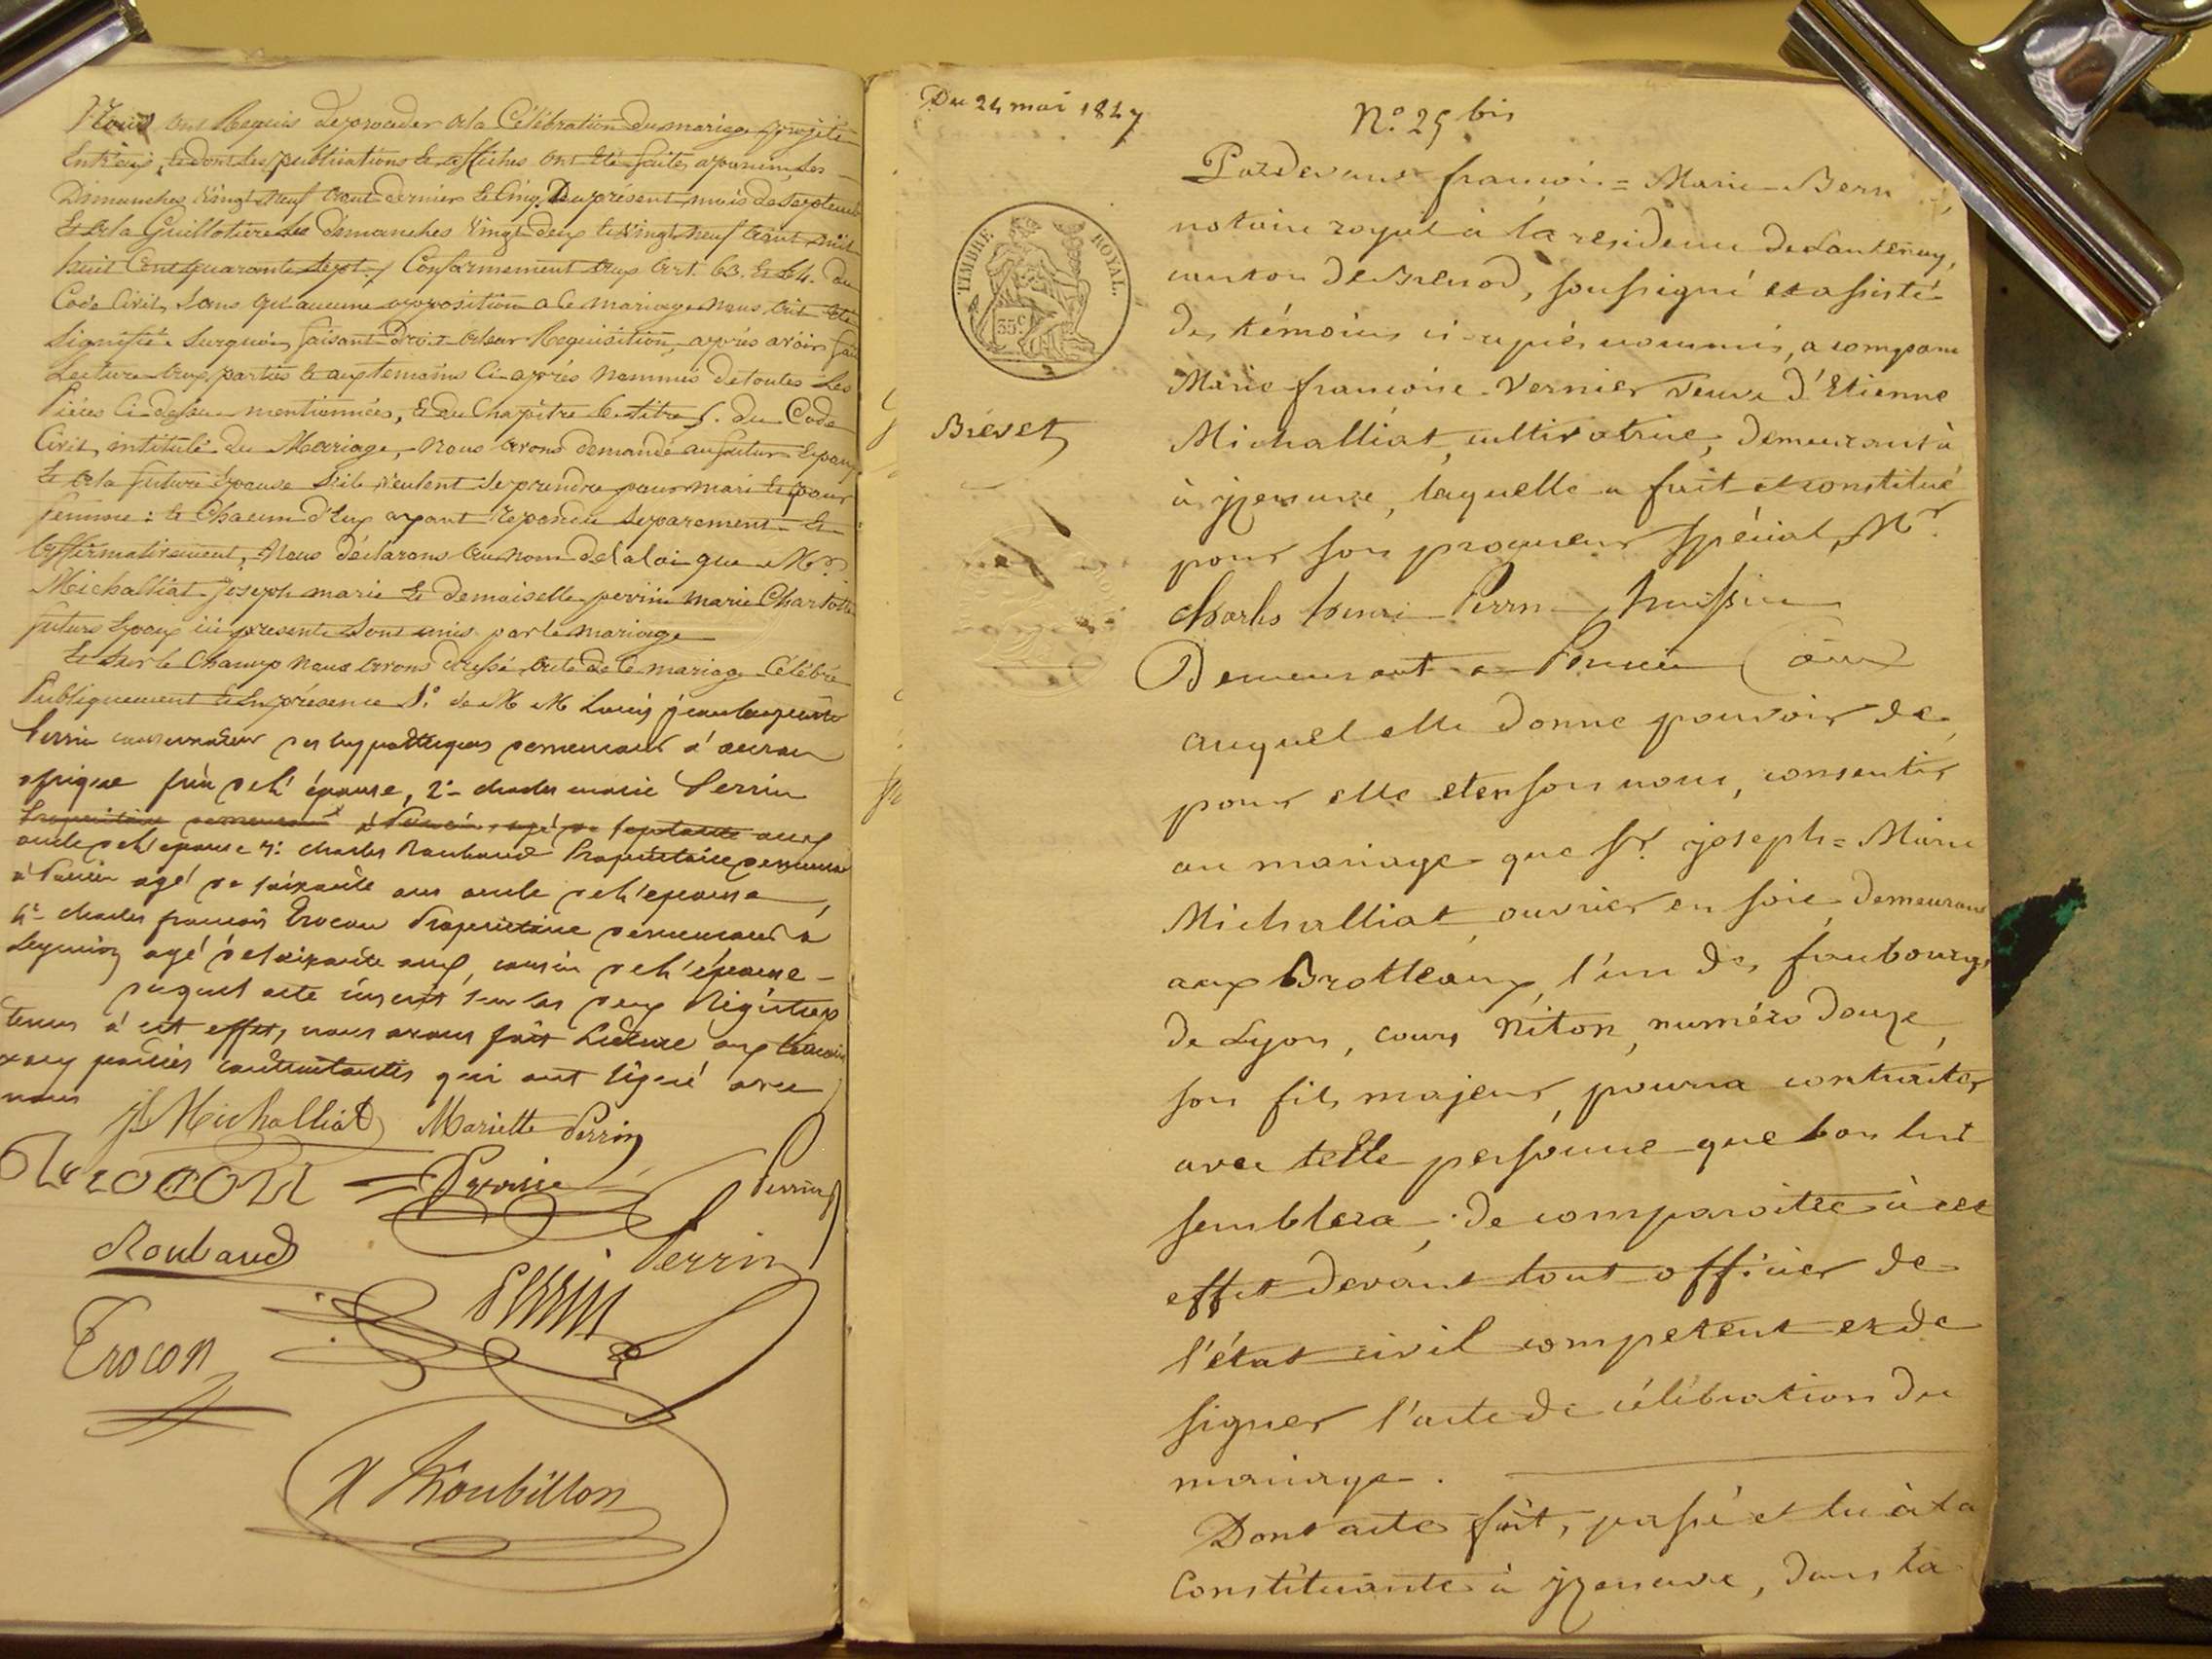 Nous ont Requis de proceder à la Célébration du mariage projeté
Entr'eux, et dont les publications et affiches ont été faites a poncin, les
Dimanches Vingt Neuf Aout dernier et Cinq Du présent mois de Septembre
Et à la Guillotiere les dimanches Vingt deux et Vingt Neuf Aout mil
huit Cent quarante Sept. / Conformement aux Art. 63. Et 64. du
Code Civil, Sans qu'aucune opposition a ce mariage Nous ait été
Signifiée Surquoi, faisant droit à leur Requisition, après avoir fait
Lecture aux parties et aux temoins Ci-après Nommés de toutes Les
Pièces Ci-dessus mentionnées, Et du Chapitre 6. titre 5. du Code
Civil, intitulé du Mariage, Nous avons demandé au futur Epoux
Et à la future Epouse S'ils veulent Se prendre pour mari Et pour
femme : Et Chacun d'Eux ayant repondu Separement Et
Affirmativement, Nous déclarons au nom de la loi que Mr
Michalliat Joseph marie Et demoiselle perrin marie Charlotte
futurs Epoux ici présents Sont unis par le mariage
Et Sur le Champ Nous avons dressé acte de ce mariage Célébré
Publiquement Et En présence 1º de M M Louis jean baptiste
Perrin conservateur des hypothèques demeurant à
afrique frère de l'épouse, 2º charles marie Perrin
Propriétaire demeurant à Poncin, agé de septante ans
oncle de l'epouse 3º charles Roubaud Propriétaire demeurant
à Poncin agé de soixante ans oncle de l'epouse,
4º charles françois Trocon Propriétaire demeurant à
Leyment agé de soixante ans, cousin de l'épouse -
duquel acte inscrit sur les deux Régistres
tenus à cet effet, nous avons fait Lecture aux temoins
& aux parties contractantes qui ont signé avec
nous
J. Michalliat Mariette Perrin
Trocon Perrin Perrin
Roubaud Perrin
Perrin
Trocon
Roubillon
Du 24 mai 1847
N.º 25 bis
TIMBRE ROYAL.
35 C
Brévet
Pardevant françois = Marie Bern
notaire royal à la residence de Lantenay,
canton de Brenod, soussigné et assisté
des témoins ci-après nommés, a comparu
Marie françoise Vernier veuve d'Etienne
Michalliat, cultivatrice, demeurant à
à jzenave, laquelle a fait et constitué
pour son procureur spécial, Mr
charles henri Perrin, huissier
Demeurant a Poncin (ain)
auquel elle donne pouvoir de,
pour elle et en son nom, consentir
au mariage que Sr. joseph = Marie
Michalliat, ouvrier en soie, demeurant
aux Brotteaux, l'un des faubourgs
de Lyon, cours Viton, numéro douze,
son fils majeur, pourra contracter
avec telle personne que bon lui
semblera ; de comparoitre à cet
effet devant tout officier de
l'état civil competent et de
signer l'acte de célébration du
mariage.
Dont acte fait, passé et lu à la
Constituante à jzenave, dans la